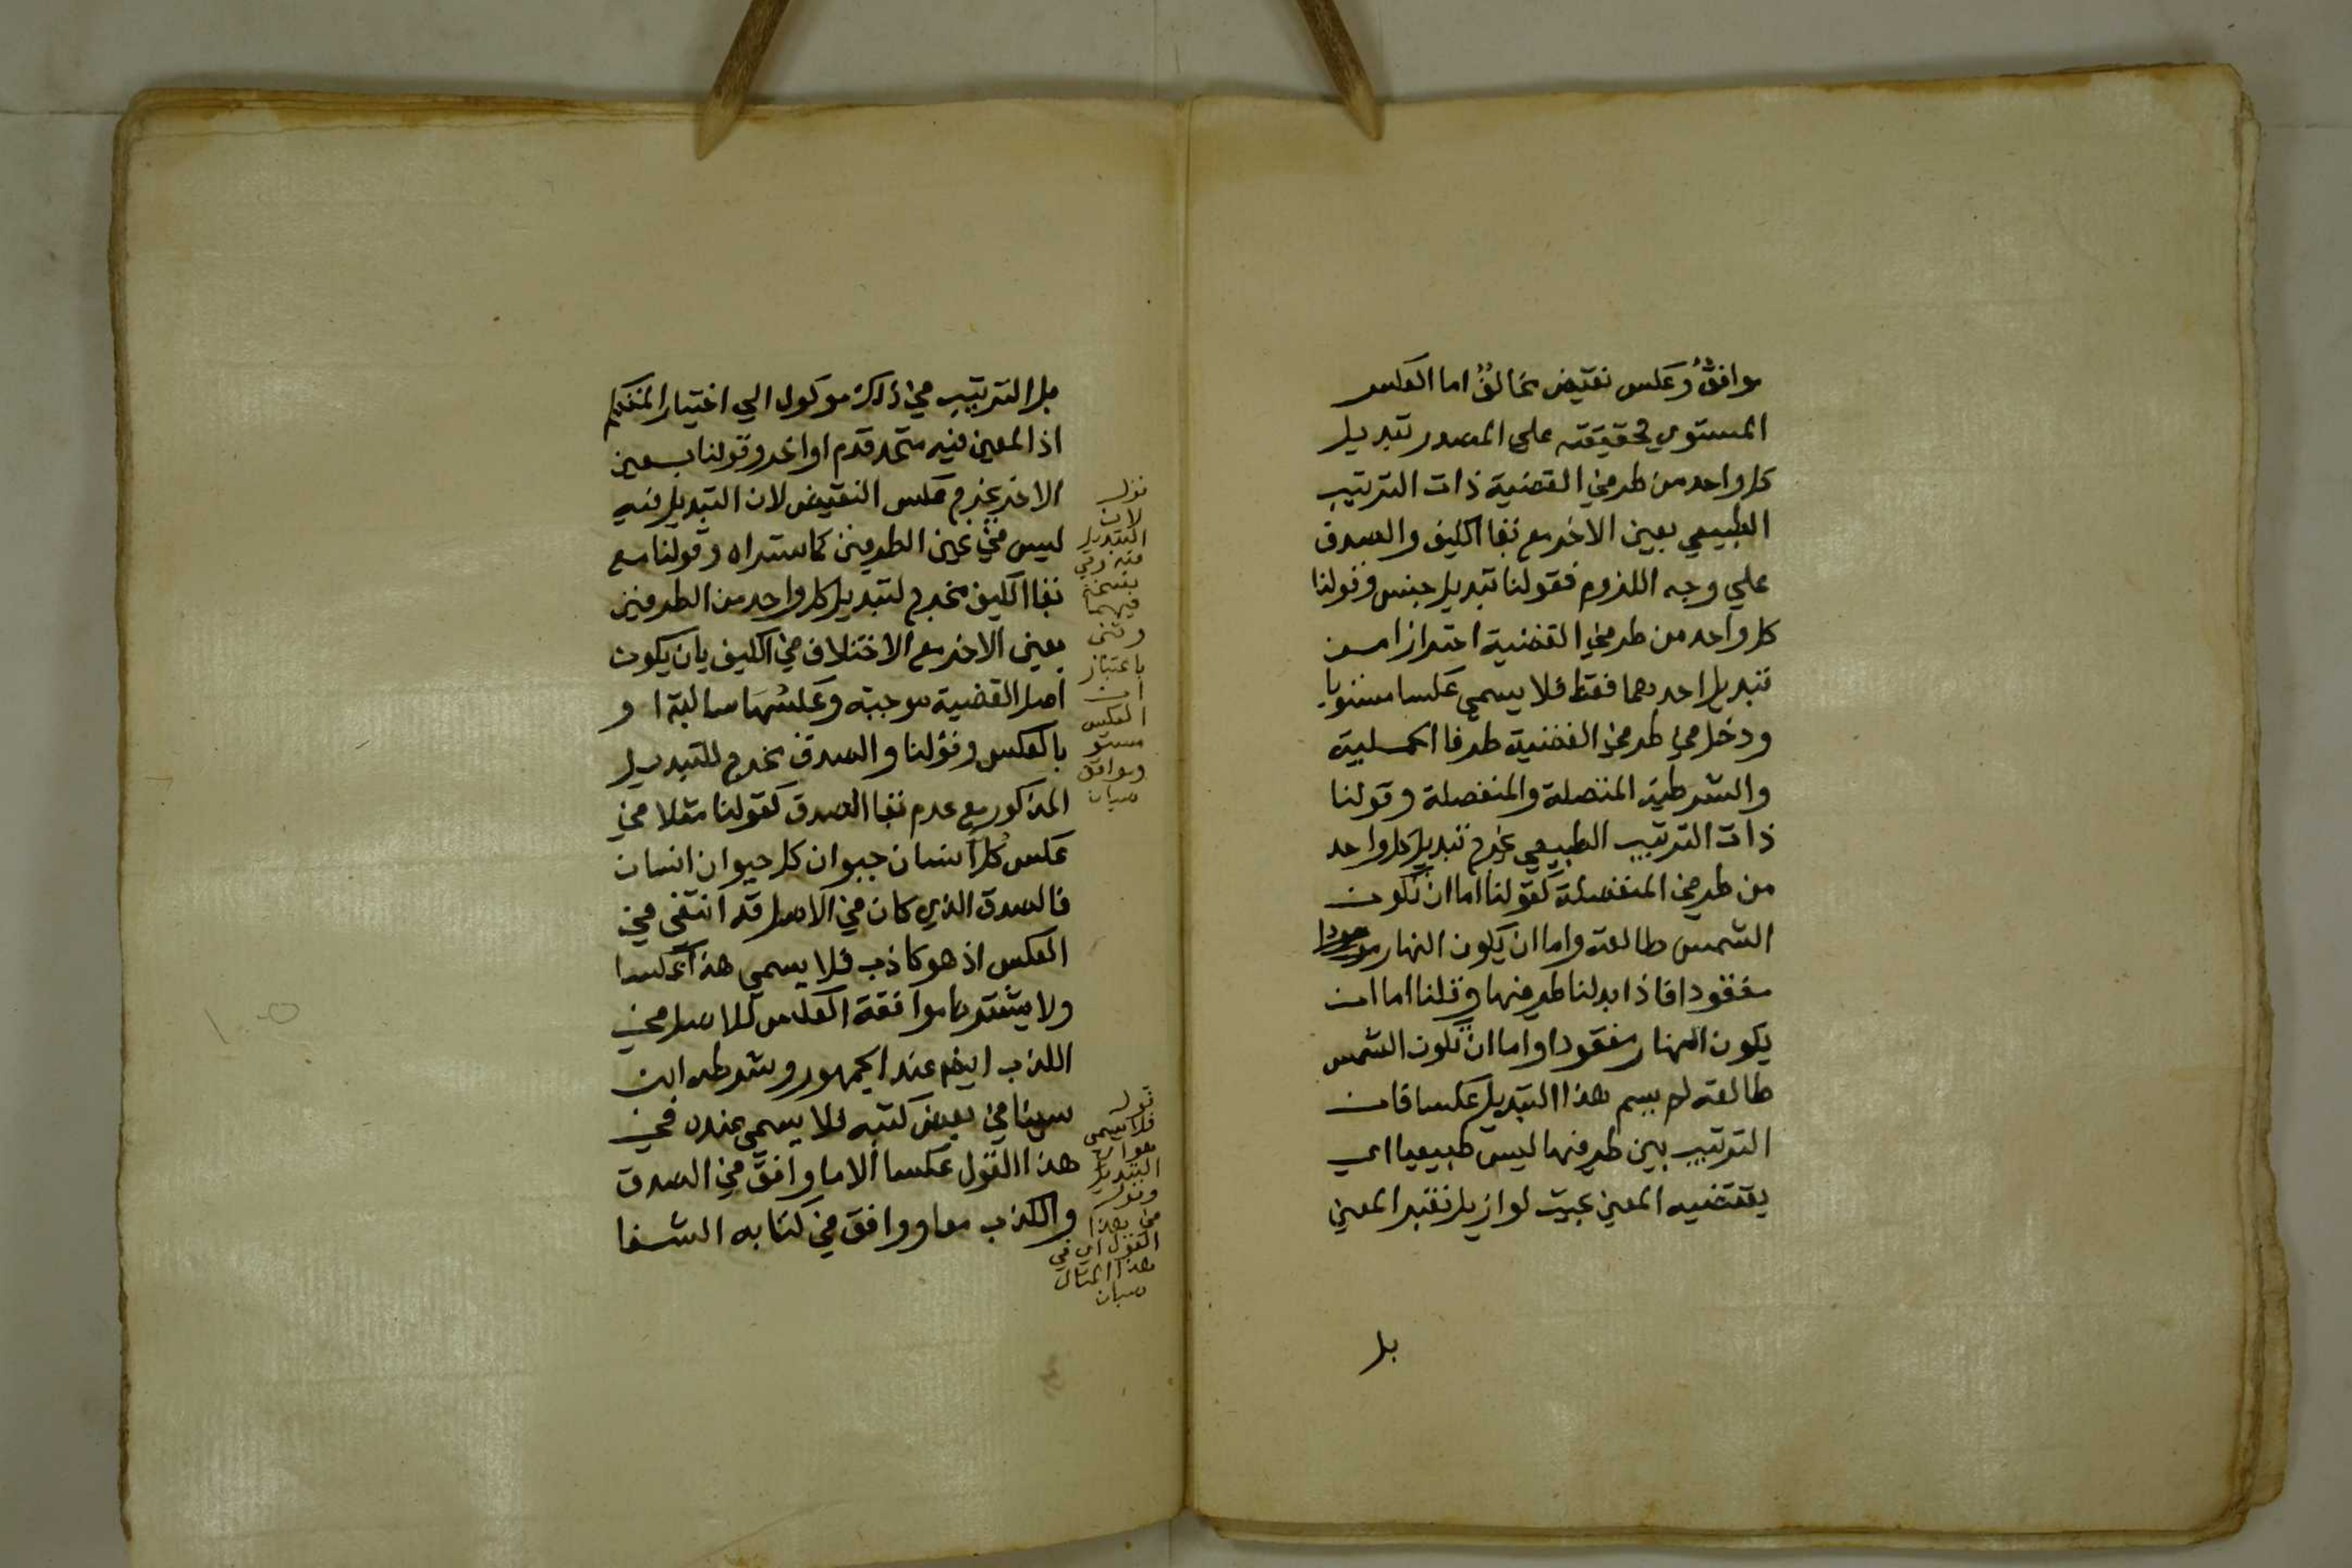 موافق وعكس نقيض مخالف اما العكس
المستوي فحقيقته على المصدر تبديل
كل واحد من طرفي القضية ذات الترتيب
الطبيعي بعين الاخر مع بقا الكيف والصدق
علي وجه اللزوم فقولنا تبديل جنس وقولنا
كل واحد من طرفي القضية احترازا من
تبديل احدهما فقط فلا يسمي عكسا مستويا
ودخل في طرفي القضية طرفا الحملية
والشرطية المتصلة والمنفصلة وقولنا
ذات الترتيب الطبيعي يخرج تبديل كل واحد
من طرفي المنفصلة كقولنا اما ان تكون
الشمس طالعة واما ان يكون النهار موجودا
مفقودا فاذا ابدلنا طرفيها وقلنا اما ان
يكون النهار مفقودا واما ان تكون الشمس
طالعة لم يسم هذا التبديل عكسا فان
الترتيب بين طرفيها ليس طبيعيا اي
يقتضيه المعني بحيث لو ازيل تغير المعني
بل
بل الترتيب في ذلك موكول الي اختيار المتكلم
اذ المعني فيه متحد قدم او اخر وقولنا بعين
الاخر يخرج عكس النقيض لان التبديل فيه
ليس في عين الطرفين كما ستراه وقولنا مع
بقا الكيف مخرج لتبديل كل واحد من الطرفين
بعين الاخر مع الاختلاف في الكيف بان يكون
اصل القضية موجبة وعكسها سالبة او
بالعكس وقولنا والصدق يخرج للتبديل
المذكور مع عدم بقا الصدق كقولنا مثلا في
عكس كل انسان حيوان كل حيوان انسان
فالصدق الذي كان في الاصل قد انتفى في
العكس اذ هو كاذب فلا يسمي هذا عكسا
ولا يشترط موافقة العكس للاصل في
الكذب ايضا عند الجمهور وشرطه ابن
سينا في بعض كتبه فلا يسمي عنده في
هذا القول عكسا الا ما وافق في الصدق
والكذب معا ووافق في كتابه الشفا
قوله
لان
التبديل
فيه وفي
نسخة
فيهما
وثنى
باعتبار
ان
العكس
مستو
وموافق
صبان
قوله
فلا يسمى
هو اي
التبديل
وقوله
في هذا
القول اي في
هذا المثال
صبان